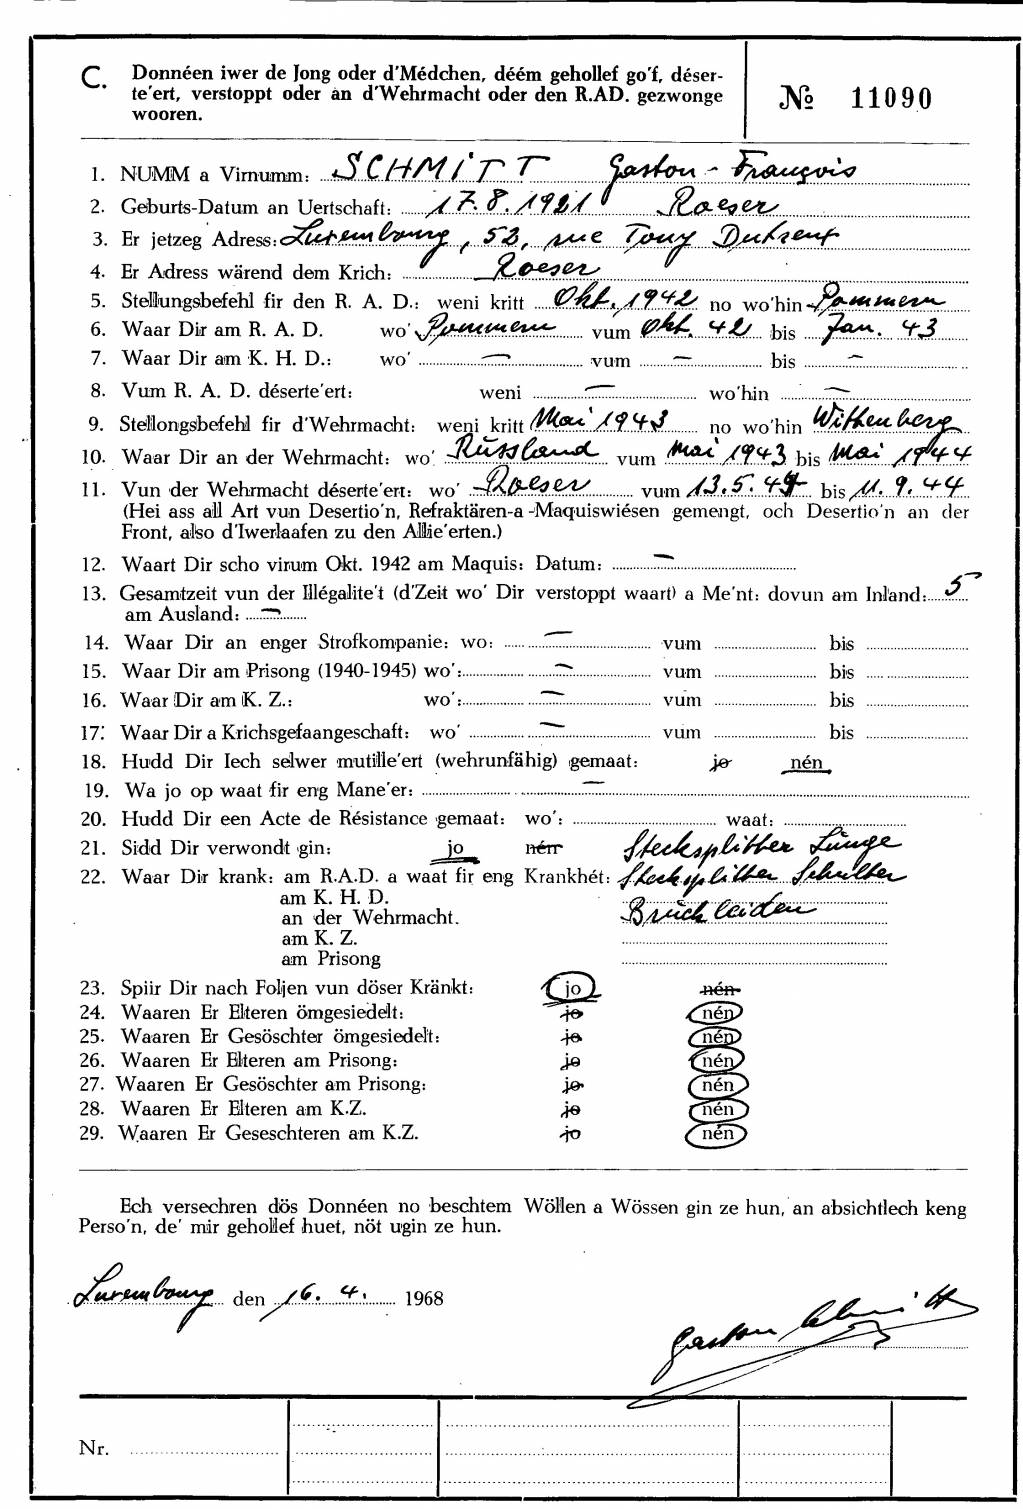 C. Donnéen iwer de Jong oder d'Médchen, déém gehollef go'f, déser-
te'ert, verstoppt oder an d'Wehrmacht oder den R.AD. gezwonge
wooren.
№ 11090
1. NUMM a Virnumm: SCHMITT Gaston-François
2. Geburts-Datum an Uertschaft: 17.8.1921 Roeser
3. Er jetzeg Adress: Luxembourg, 52, rue Tony Dutreux
4. Er Adress wärend dem Krich: Roeser
5. Stellungsbefehl fir den R. A. D.: weni kritt Okt. 1942 no wo'hin Pommern
6. Waar Dir am R. A. D. wo' Pommern vum Okt. 42 bis Jan. 43
7. Waar Dir am K. H. D.: wo' — vum — bis —
8. Vum R. A. D. déserte'ert: weni — wo'hin —
9. Stellongsbefehl fir d'Wehrmacht: weni kritt Mai 1943 no wo'hin Wittenberg
10. Waar Dir an der Wehrmacht: wo' Russland vum Mai 1943 bis Mai 1944
11. Vun der Wehrmacht déserte'ert: wo' Roeser vum 13.5.44 bis 11.9.44
(Hei ass all Art vun Desertio'n, Refraktären-a -Maquiswiésen gemengt, och Desertio'n an der
Front, also d'Iwerlaafen zu den Allie'erten.)
12. Waart Dir scho virum Okt. 1942 am Maquis: Datum: —
13. Gesamtzeit vun der Illégalite't (d'Zeit wo' Dir verstoppt waart) a Me'nt: dovun am Inland: 5
am Ausland: —
14. Waar Dir an enger Strofkompanie: wo: — vum bis
15. Waar Dir am Prisong (1940-1945) wo': — vum bis
16. Waar Dir am K. Z.: wo': — vum bis
17. Waar Dir a Krichsgefaangeschaft: wo' — vum bis
18. Hudd Dir Iech selwer mutille'ert (wehrunfähig) gemaat: jo nén
19. Wa jo op waat fir eng Mane'er: —
20. Hudd Dir een Acte de Résistance gemaat: wo': waat:
21. Sidd Dir verwondt gin: jo nén Stecksplitter Lunge
22. Waar Dir krank: am R.A.D. a waat fir eng Krankhét: Stecksplitter Schulter
am K. H. D.
an der Wehrmacht. Bruchleiden
am K. Z.
am Prisong
23. Spiir Dir nach Foljen vun döser Kränkt: jo nén
24. Waaren Er Elteren ömgesiedelt: jo nén
25. Waaren Er Gesöschter ömgesiedelt: jo nén
26. Waaren Er Elteren am Prisong: jo nén
27. Waaren Er Gesöschter am Prisong: jo nén
28. Waaren Er Elteren am K.Z. jo nén
29. Waaren Er Geseschteren am K.Z. jo nén
Ech versechren dös Donnéen no beschtem Wöllen a Wössen gin ze hun, an absichtlech keng
Perso'n, de' mir gehollef huet, nöt ugin ze hun.
Luxembourg den 16. 4. 1968
Gaston Schmitt
Nr.